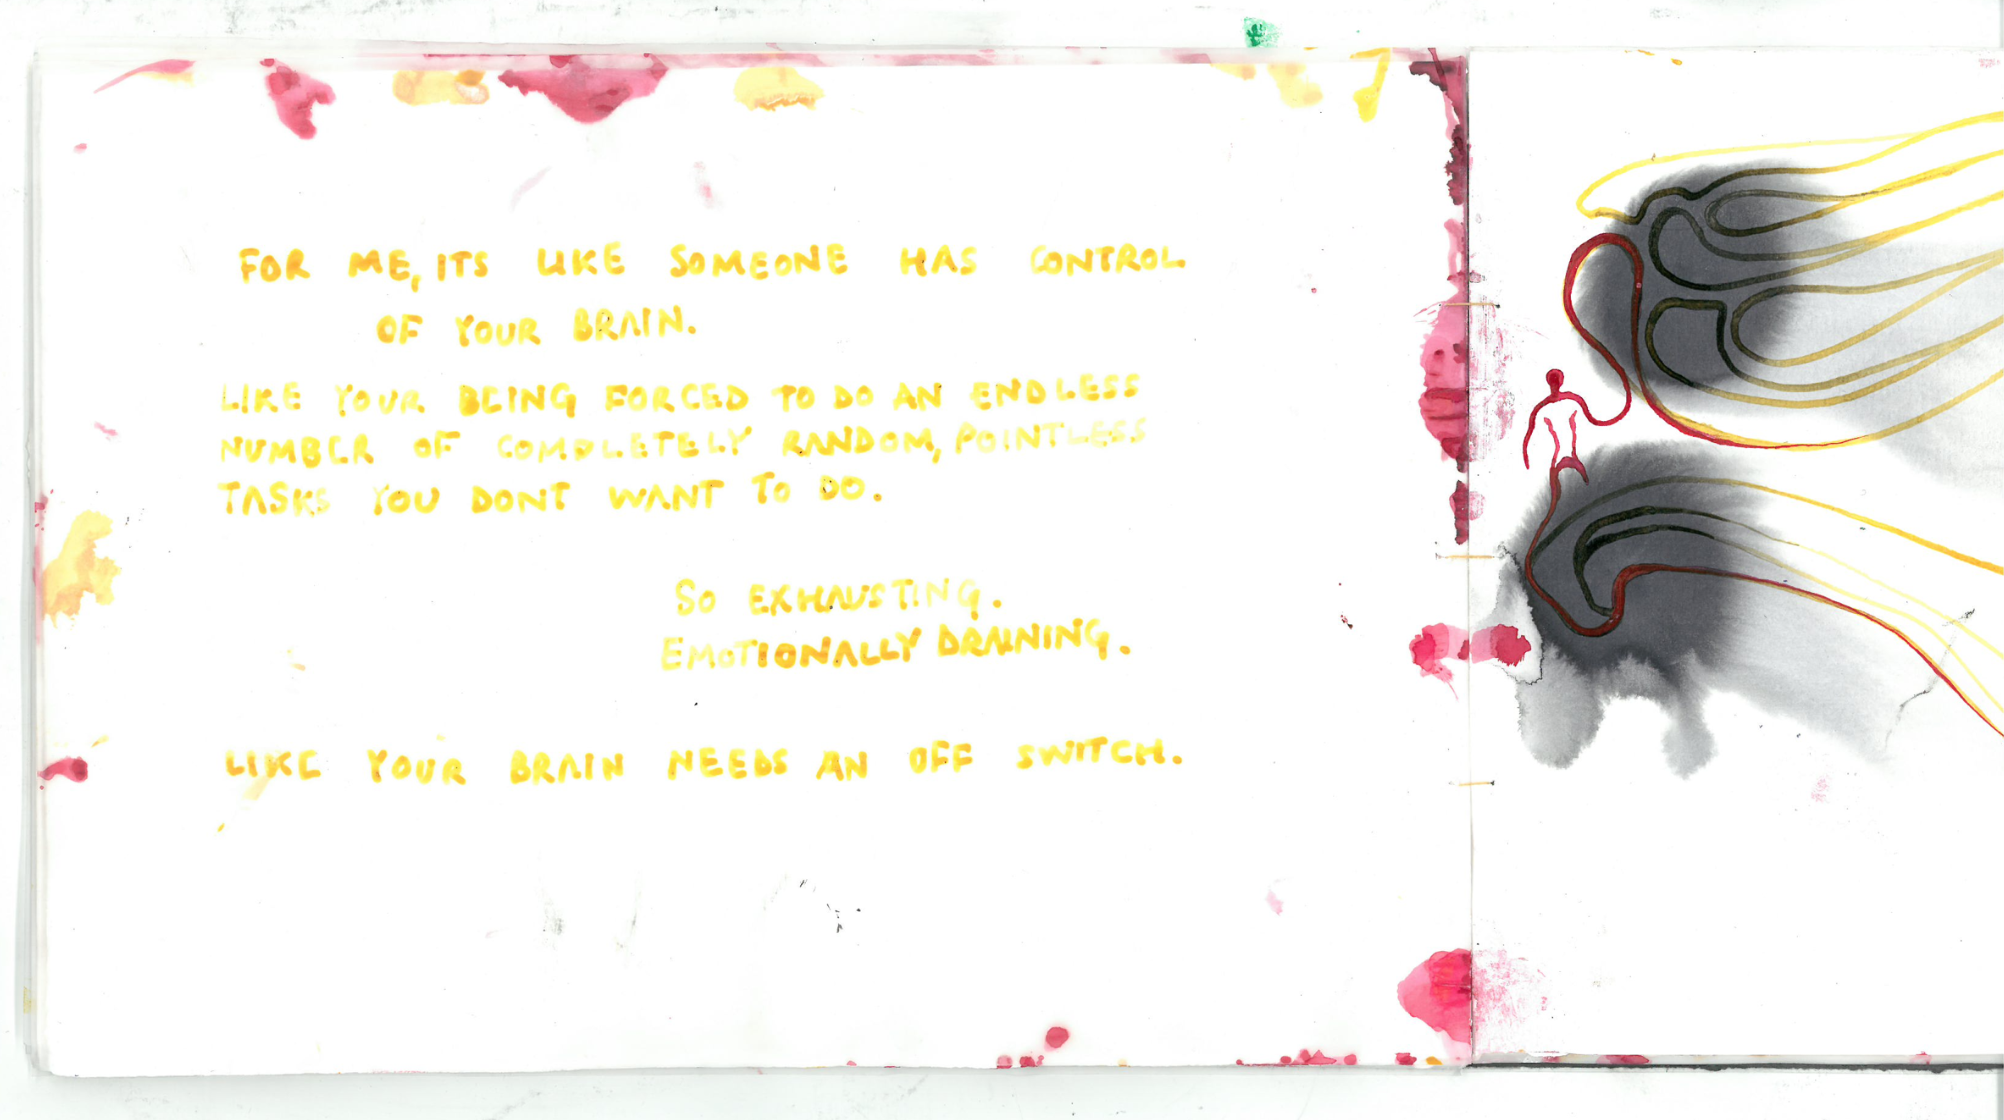 FOR ME, ITS LIKE SOMEONE HAS CONTROL
OF YOUR BRAIN.
LIKE YOUR BEING FORCED TO DO AN ENDLESS
NUMBER OF COMPLETELY RANDOM, POINTLESS
TASKS YOU DONT WANT TO DO.
SO EXHAUSTING.
EMOTIONALLY DRAINING.
LIKE YOUR BRAIN NEEDS AN OFF SWITCH.